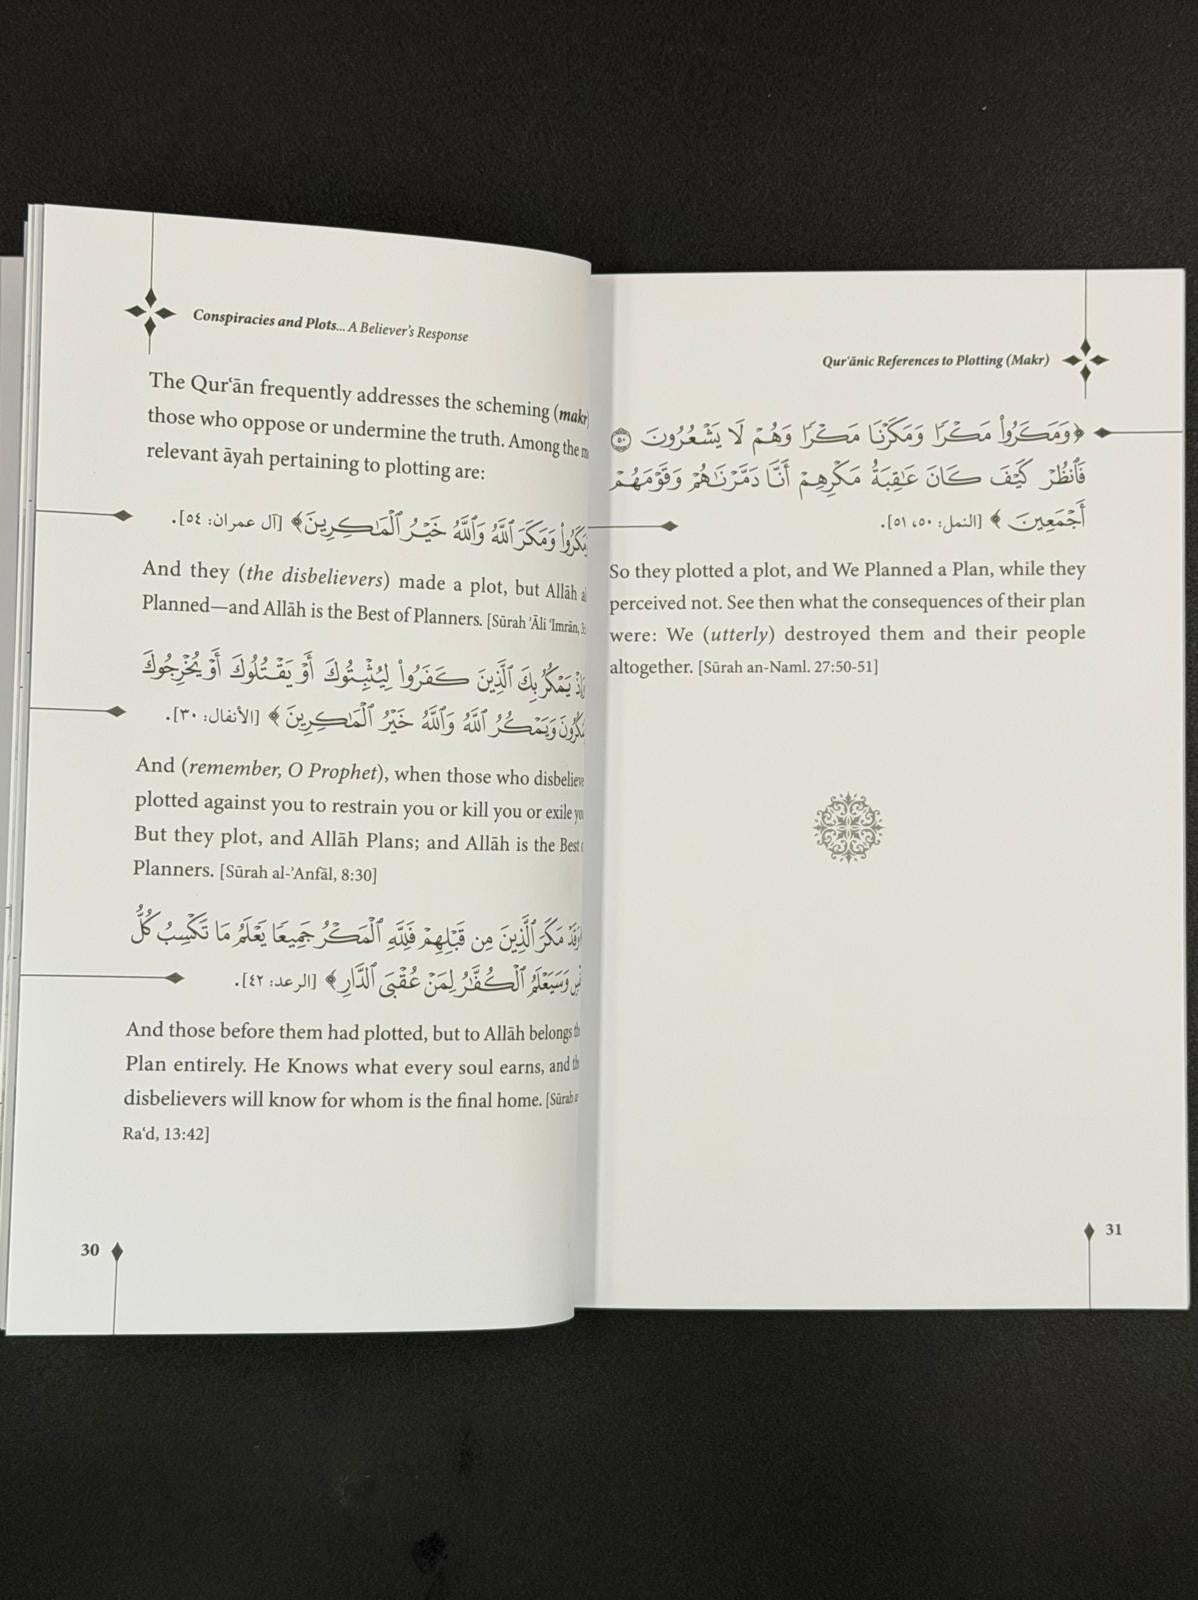 Conspiracies and Plots... A Believer's Response
The Qur'ān frequently addresses the scheming (makr
those who oppose or undermine the truth. Among the
relevant āyah pertaining to plotting are:
وَمَكَرَ ٱللَّهُ وَٱللَّهُ خَيْرُ ٱلْمَٰكِرِينَ﴾ [آل عمران: ٥٤].
And they (the disbelievers) made a plot, but Allāh
Planned—and Allāh is the Best of Planners. [Sūrah 'Āli 'Imrān,
يَمْكُرُ بِكَ ٱلَّذِينَ كَفَرُوا۟ لِيُثْبِتُوكَ أَوْ يَقْتُلُوكَ أَوْ يُخْرِجُوكَ
وَيَمْكُرُ ٱللَّهُ وَٱللَّهُ خَيْرُ ٱلْمَٰكِرِينَ ﴾ [الأنفال: ٣٠].
And (remember, O Prophet), when those who disbelieve
plotted against you to restrain you or kill you or exile
But they plot, and Allāh Plans; and Allāh is the Best
Planners. [Sūrah al-'Anfāl, 8:30]
مَكَرَ ٱلَّذِينَ مِن قَبْلِهِمْ فَلِلَّهِ ٱلْمَكْرُ جَمِيعًا يَعْلَمُ مَا تَكْسِبُ كُلُّ
وَسَيَعْلَمُ ٱلْكُفَّٰرُ لِمَنْ عُقْبَى ٱلدَّارِ ﴾ [الرعد: ٤٢].
And those before them had plotted, but to Allāh belongs
Plan entirely. He Knows what every soul earns, and
disbelievers will know for whom is the final home. [Sūrah
Ra'd, 13:42]
30
Qur'ānic References to Plotting (Makr)
﴿وَمَكَرُوا۟ مَكْرًا وَمَكَرْنَا مَكْرًا وَهُمْ لَا يَشْعُرُونَ ٥٠
فَٱنظُرْ كَيْفَ كَانَ عَٰقِبَةُ مَكْرِهِمْ أَنَّا دَمَّرْنَٰهُمْ وَقَوْمَهُمْ
أَجْمَعِينَ ﴾ [النمل: ٥٠، ٥١].
So they plotted a plot, and We Planned a Plan, while they
perceived not. See then what the consequences of their plan
were: We (utterly) destroyed them and their people
altogether. [Sūrah an-Naml. 27:50-51]
31